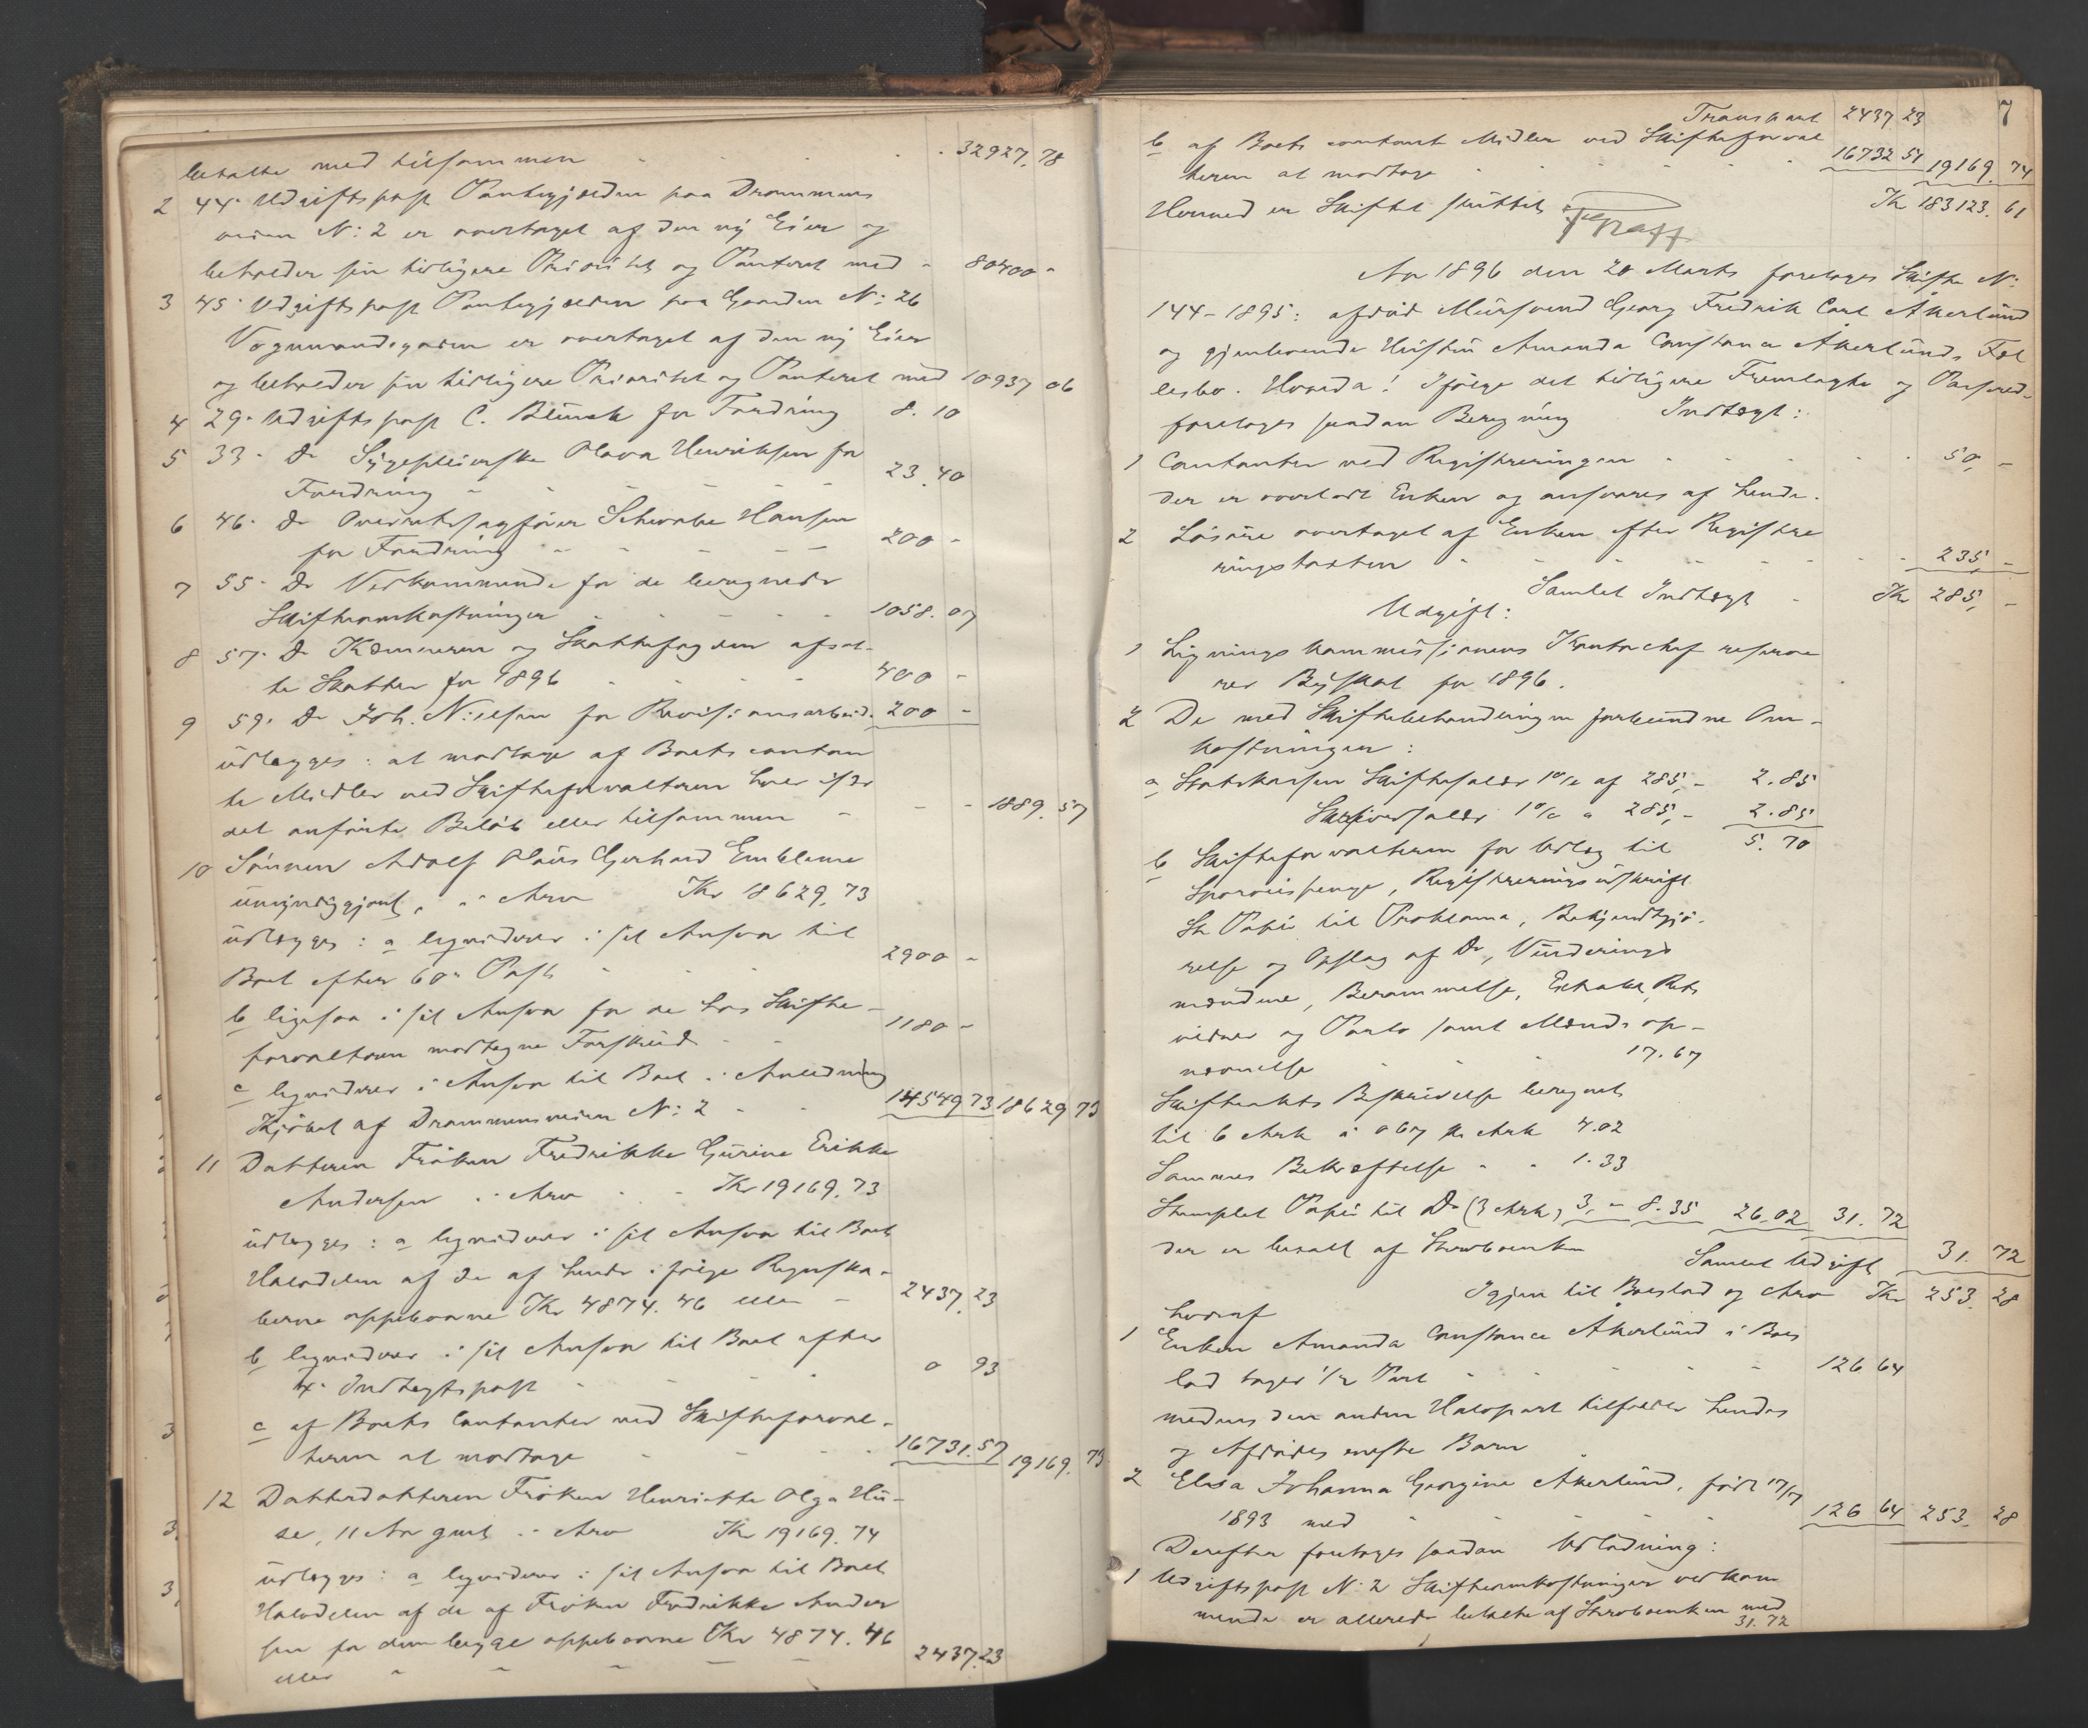 betalte med tilsammen 32927.78
2 44. Udgiftspost Pantegjælden paa Drammens
veien N: 2 er overtaget af den ny Eier og
beholder sin tidligere Prioritet og Panteret med - 80400 -
3 45. Udgiftspost Pantegjælden paa Gaarden N: 26
Vognmandsgaden er overtaget af den ny Eier
og beholder sin tidligere Prioritet og Panteret med 10937 06
4 29. Udgiftspost C. for Fordring 8.10
5 33. Do Sygepleierske Olava Henriksen for
Fordring 23.40
6 46. Do Overretssagfører Schwabe Hansen
for Fordring 200 -
7 55. Do Vedkommende for de beregnede
Skifteomkostninger 1058.07
8 57. Do Kæmneren og Skattefogden afsat-
te Skatter for 1896 400 -
9 59. Do Joh. Nielsen for Revisionsarbeid. 200 -
udlægges: at modtage af Boets contan
te Midler ved Skifteforvalteren hver især
det anførte Beløb eller tilsammen 1889.57
10 Sønnen Adolf Olaus Gerhard Emblem
umyndiggjort, i Arv Kr 18629.73
udlægges: a liqviderer i sit Ansvar til
Boet efter 60de Post 2900 -
b ligesaa i sit Ansvar for de hos Skifte-
forvalteren modtagne Forskud 1180 -
c liqviderer i Ansvar til Boet i Anledning
Kjøbet af Drammensveien N: 2 14549 73 18629 73
11 Datteren Frøken Fredrikke Gurine Erikke
Andersen i Arv Kr 19169.73
udlægges: a liqviderer i sit Ansvar til Boet
Halvdelen af de af hende ifølge Regnska-
berne oppebaarne Kr 4874.46 eller - 2437.23
b liqviderer i sit Ansvar til Boet efter
4. Indtægtspost 0 93
c af Boets Contanter ved Skifteforval-
teren at modtage 16731.57 19169.73
12 Datterdatteren Frøken Henriette Olga Hu-
se, 11 Aar gml i Arv Kr 19169.74
udlægges: a liqviderer i sit Ansvar til Boet
Halvdelen af de af Frøken Fredrikke Ander
sen for dem begge oppebaarne Kr 4874.46
eller 2437.23
7
Transport 2437 23
b af Boets contante Midler ved Skifteforval
teren at modtage 16732 51 19169.74
Hermed er Skiftet sluttet Kr 183123.61
Aar 1896 den 20 Marts foretoges Skifte N:
144-1895: afdød Mursvend Georg Fredrik Carl Åkerlund
og gjenlevende Hustru Amanda Constance Åkerlunds Fæl
lesbo. Hvorda! Ifølge det tidligere Fremlagte og Passered-
foretoges saadan Beregning Indtægt:
1 Contanter ved Registreringen 50, -
der er overladt Enken og ansvares af hende.
2 Løsøre overtaget af Enken efter Registre
ringstaxten 235, -
Samlet Indtægt - Kr 285, -
Udgift:
1 Ligningskommissionens Kontorchef reserve
rer Byskat for 1896.
2 De med Skiftebehandlingen forbundne Om-
kostninger:
a Statskassen Skiftesalær 1% af 285,- 2.85
Skriversalær 1% " 285,- 2.85
5.70
b Skifteforvalteren for Udlæg til
Sporvispenge, Registreringsudskrift
St Papir til Proklama, Bekjendtgjø-
relse og Opslag af Do, Vurderings
mændene, Berammelse, Extrakt, Rets
vidner og Porto samt Mænds op-
nævnelse 17.67
Skifteakts Beskrivelse beregnet
til 6 Ark à 067 pr Ark 4.02
Sammes Bekræftelse " " 1.33
Stemplet Papir til Do (3 Ark) 3, - 8.35 26.02 31.72
der er betalt af Stervboenken Samlet Udgift 31.72
Igjen til Boeslod og Arv Kr 253.28
hvoraf
1 Enken Amanda Constance Åkerlund i Boes
lod tager 1/2 Part 126 64
medens den anden Halvpart tilfalder hendes
og Afdødes eneste Barn
2 Elsa Johanna Georgine Åkerlund, født 17/7
1893 med 126 64 253.28
Derefter foretoges saadan Udlodning:
1 Udgiftspost N: 2 Skifteomkostninger vedkom
mende er allerede betalte af Stervboenken med
31.72